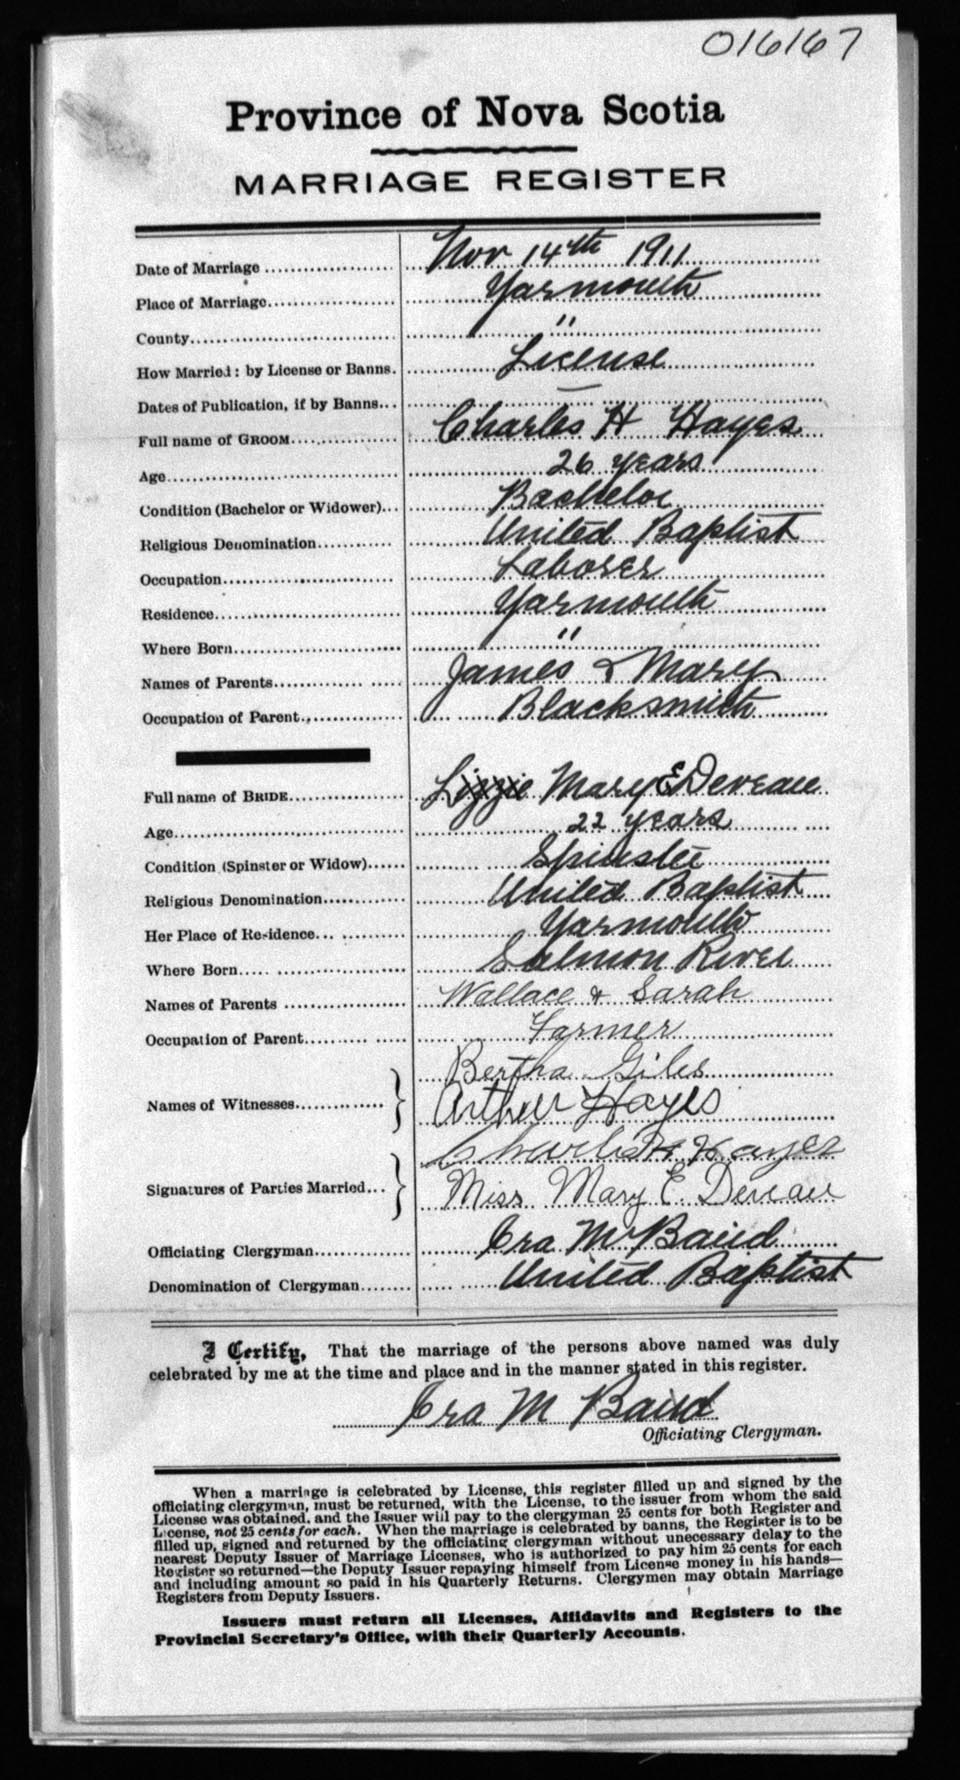 016167
Province of Nova Scotia
MARRIAGE REGISTER
Date of Marriage Nov 14th 1911
Place of Marriage Yarmouth
County "
How Married: by License or Banns. License
Dates of Publication, if by Banns —
Full name of GROOM Charles H Hayes
Age 26 years
Condition (Bachelor or Widower) Bachelor
Religious Denomination United Baptist
Occupation Laborer
Residence Yarmouth
Where Born "
Names of Parents James & Mary
Occupation of Parent Blacksmith
Full name of BRIDE Lizzie Mary E Deveau
Age 22 years
Condition (Spinster or Widow) Spinster
Religious Denomination United Baptist
Her Place of Residence Yarmouth
Where Born Salmon River
Names of Parents Wallace & Sarah
Occupation of Parent Farmer
Names of Witnesses Bertha Giles
Arthur Hayes
Signatures of Parties Married Charles H Hayes
Miss Mary E. Deveau
Officiating Clergyman Ira M Baird
Denomination of Clergyman United Baptist
I Certify, That the marriage of the persons above named was duly
celebrated by me at the time and place and in the manner stated in this register.
Ira M Baird
Officiating Clergyman.
When a marriage is celebrated by License, this register filled up and signed by the
officiating clergyman, must be returned, with the License, to the issuer from whom the said
License was obtained, and the Issuer will pay to the clergyman 25 cents for both Register and
License, not 25 cents for each. When the marriage is celebrated by banns, the Register is to be
filled up, signed and returned by the officiating clergyman without unnecessary delay to the
nearest Deputy Issuer of Marriage Licenses, who is authorized to pay him 25 cents for each
Register so returned—the Deputy Issuer repaying himself from License money in his hands—
and including amount so paid in his Quarterly Returns. Clergymen may obtain Marriage
Registers from Deputy Issuers.
Issuers must return all Licenses, Affidavits and Registers to the
Provincial Secretary's Office, with their Quarterly Accounts.